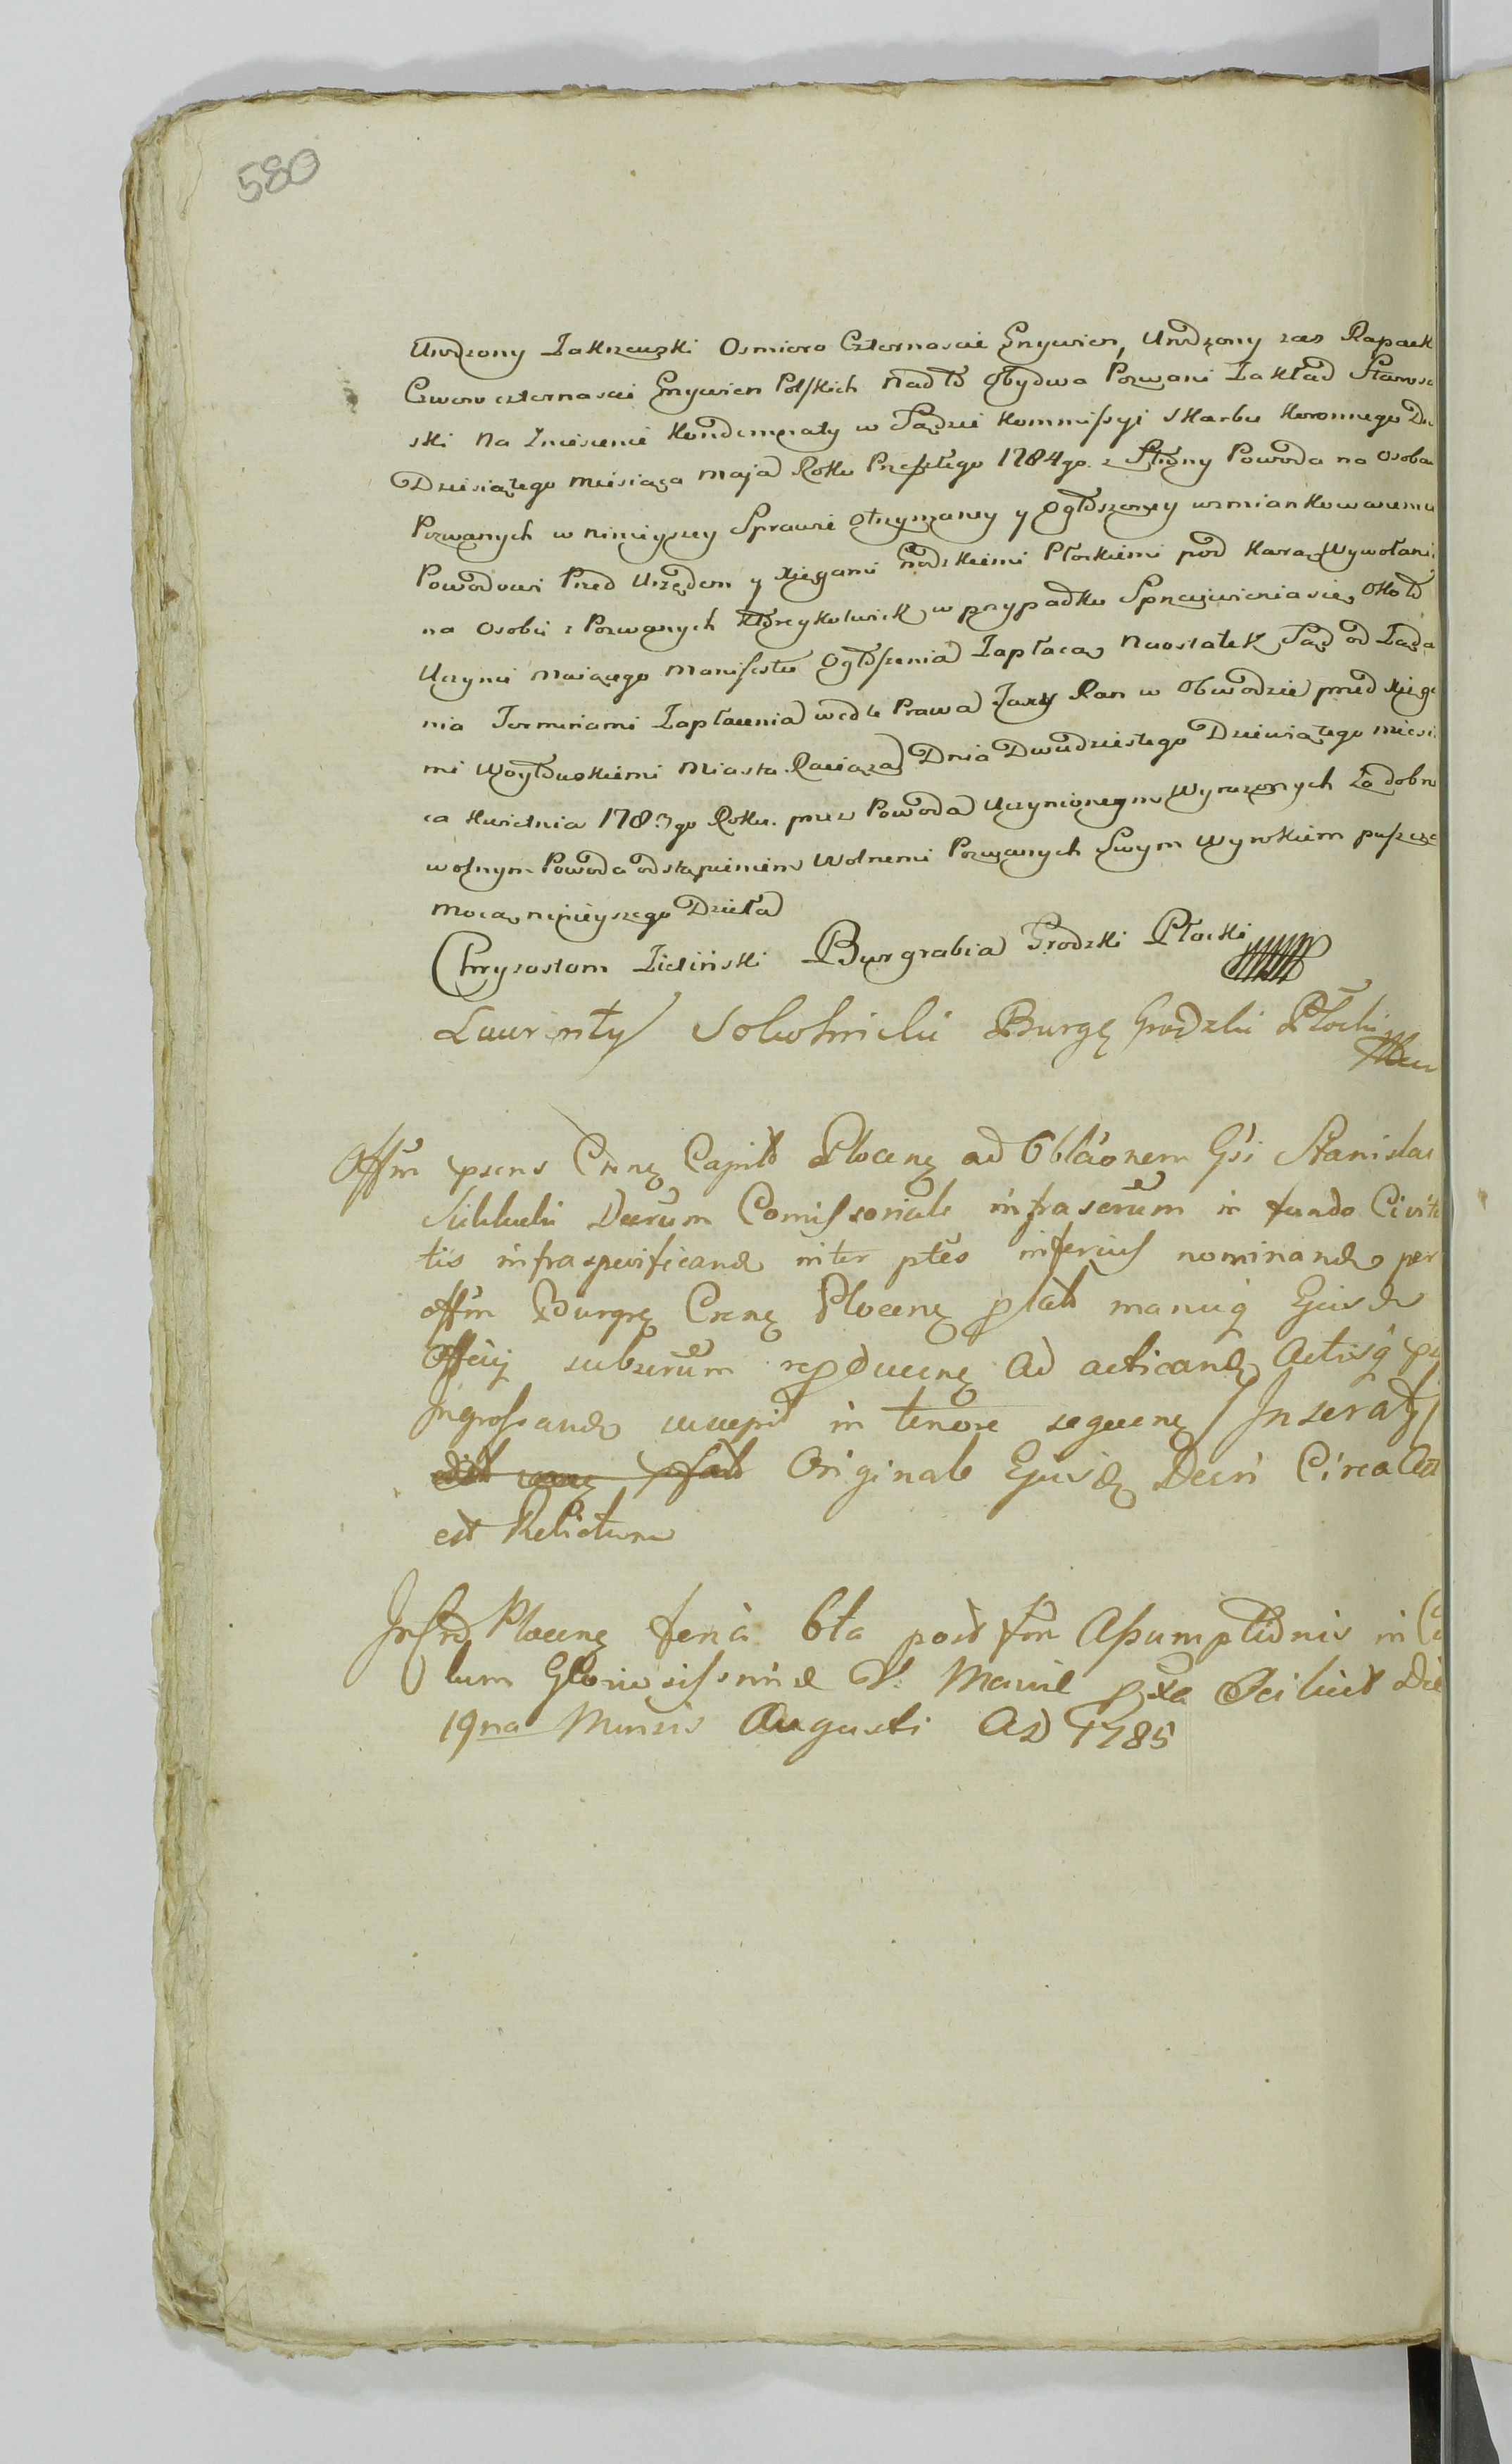 580
Urodzony Zakrzewski Osmioro Czternascie Grzywien, Urodzony zas Rapack
Czworo czternascie Grzywien Polskich nad to Obydwa Pozwani Zakład Starosc
ski na Zniesienie Kondemnaty w Sądzie Kommissyi Skarbu Koronnego Dn
Dziesiątego Miesiąca Maja Roku Przeszłego 1784go. z Strony Powoda na osobach
Pozwanych w ninieyszey Sprawie otrzymaney y Ogłoszoney wzmiankowanemu
Powodowi Przed Urzędem y Xięgami Grodzkiemi Płockiemi pod karą Wywołani
na Osobie z Pozwanych ktoreykolwiek w przypadku Sprzeciwienia się, Około
Uczynie maiącego Manifestu Ogłoszenia Zapłacą Naostatek Sąd od Żąda
nia Terminami Zapłacenia wedle Prawa Taxy Ran w Obwodzie przed Xięga
mi Woytowskiemi Miasta Raciąża Dnia Dwudziestego Dziewiątego miesią
ca Kwietnia 1783go Roku. przez Powoda Uczynionegm Wyrażonych Za dobro
wolnym Powoda odstąpieniem Wolnemi Pozwanych Swym Wyrokiem puszcza
mocą ninieyszego Dzieła
Chryzostom Zieliński Burgrabia Grodzki Płocki
Laurenty Sokolnicki Burg Grodzki Płocki
Offm psens Crñe Capitt Plocen ad Oblãonem Gsi Stanislai
Decrum Comissoriale infrascrum in fundo Civita
tis infraspecificand inter ptes inferius nominand per
offm Burgr Cren Plocen plat manuq Ejusd
Officij subscrum rep ducen Ad acticand Actisq ps
Ingrossand suscepit in tenore sequen / Inserat /
Originale Ejusd Decri Circa Act
est Relictum
In Cro Plocen feria 6ta post fm Assumptionis in Co
lum Gloriosissimæ V. Mariæ pxa Scilicet Die
19na Mensis Augusti AD 1785